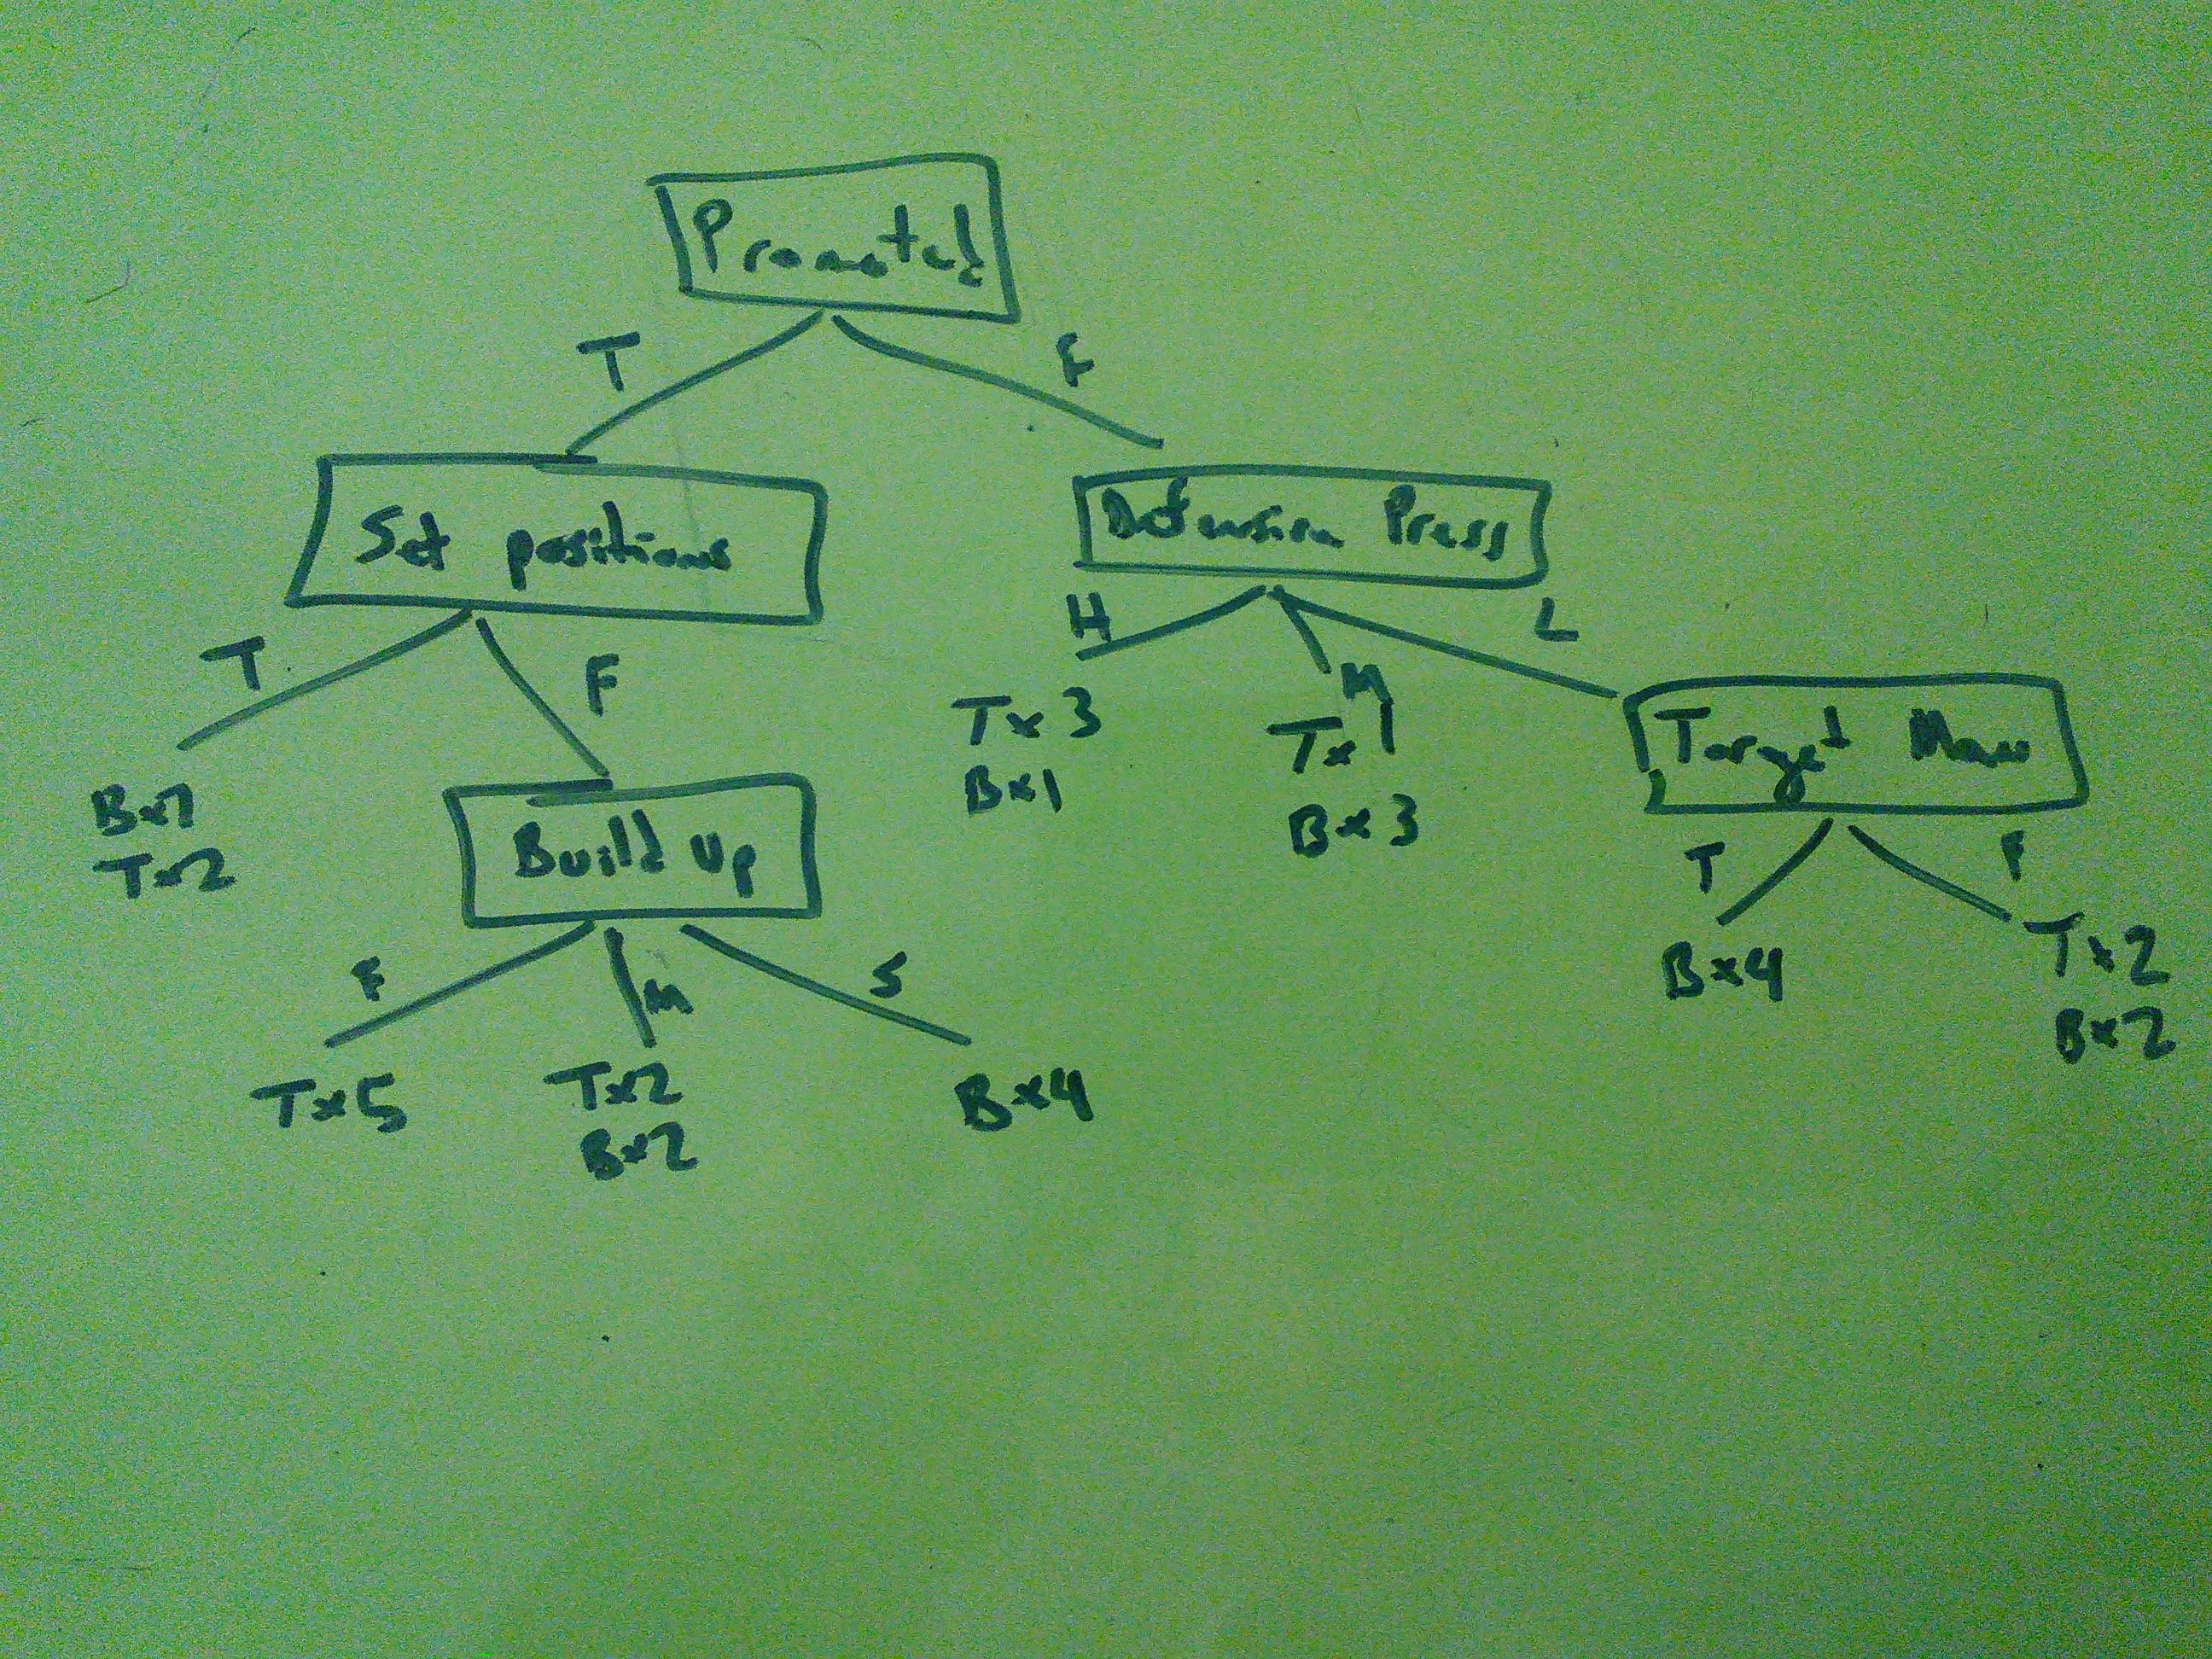 Promoted
T F
Set positions
Defensive Press
T F
H M L
Bx7
Tx2
Build Up
Tx3
Bx1
Tx1
Bx3
Target Man
F M S
T F
Tx5
Tx2
Bx2
Bx4
Bx4
Tx2
Bx2